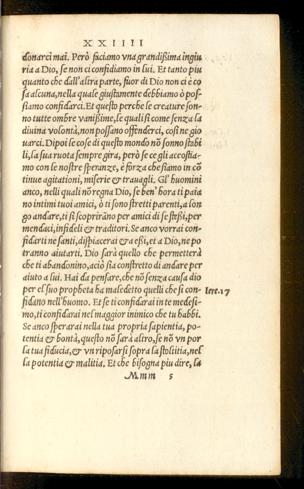 XXIIII
donarci mai. Però faciamo vna grandißima ingiu
ria a Dio, se non ci confidiamo in lui. Et tanto piu
quanto che dall'altra parte, fuor di Dio non ci è co
sa alcuna, nella quale giustamente debbiamo ò pos-
siamo confidarci. Et questo perche le creature son-
no tutte ombre vanißime, le quali si come senza la
diuina volontà, non possano offenderci, così ne gio
uarci. Dipoi le cose di questo mondo nõ sonno stabi
li, la sua ruota sempre gira, però se ce gli accostia-
mo con le nostre speranze, è forza che siamo in cõ
tinue agitationi, miserie & trauagli. Gl' huomini
anco, nelli quali nõ regna Dio, se ben' hora ti paia
no intimi tuoi amici, ò ti sono stretti parenti, a lon
go andare, ti si scopriràno per amici di se steßi, per
mendaci, infideli & traditori. Se anco vorrai con
fidarti ne santi, dispiacerai & a eßi, et a Dio, ne po
tranno aiutarti. Dio sarà quello che permetterà
che ti abandonino, acciò sia constretto di andare per
aiuto a lui. Hai da pensare, che nõ senza causa dio
per el suo propheta ha maledetto quelli che si con-
Iere. 17
fidano nell'huomo. Et se ti confidarai in te medesi-
mo, ti confidarai nel maggior inimico che tu habbi.
Se anco sperarai nella tua propria sapientia, po-
tentia & bontà, questo nõ sarà altro, se nõ vn por
re la tua fiducia, & vn riposarsi sopra la stoltitia, nel
la potentia & malitia. Et che bisogna piu dire, la
Mmm 5